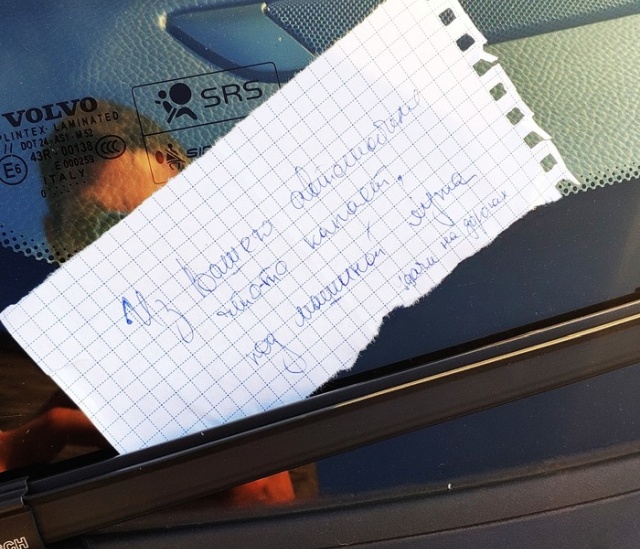 VOLVO
SPLINTEX-LAMINATED
// DOT24 AS1 M52
E6 43R-00138 CCC
E000259
ITALY
SRS
Из Вашего автомобиля
что-то капает,
под машиной лужа
удачи на дорогах